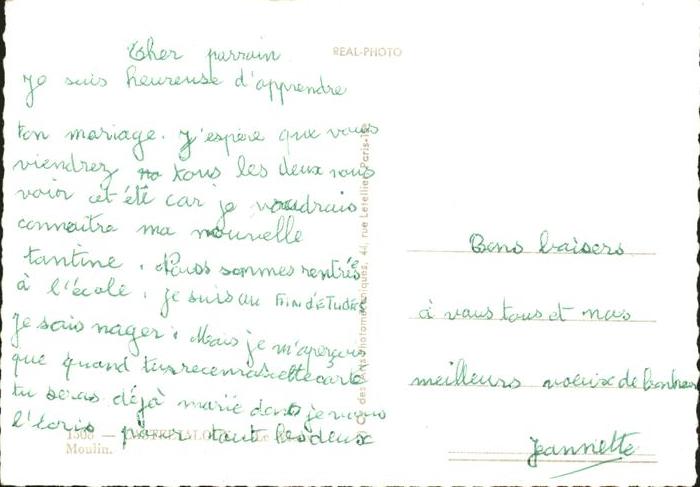 Cher parrain
REAL-PHOTO
Je suis heureuse d'apprendre
ton mariage. J'espère que vous
viendrez tous les deux nous
voir cet été car je voudrais
connaitre ma nouvelle
tantine. Nous sommes rentrés
à l'école, je suis au FIN d'ETUDES
Je sais nager. Mais je m'aperçois
que quand tu recevras cette carte
tu seras déjà marié donc je vous
l'écris pour tout les deux
Bons baisers
à vous tous et nos
meilleurs voeux de bonheur
Jeannette
des Arts Photomécaniques, 44, rue Letellier, Paris-15
1508
Moulin.